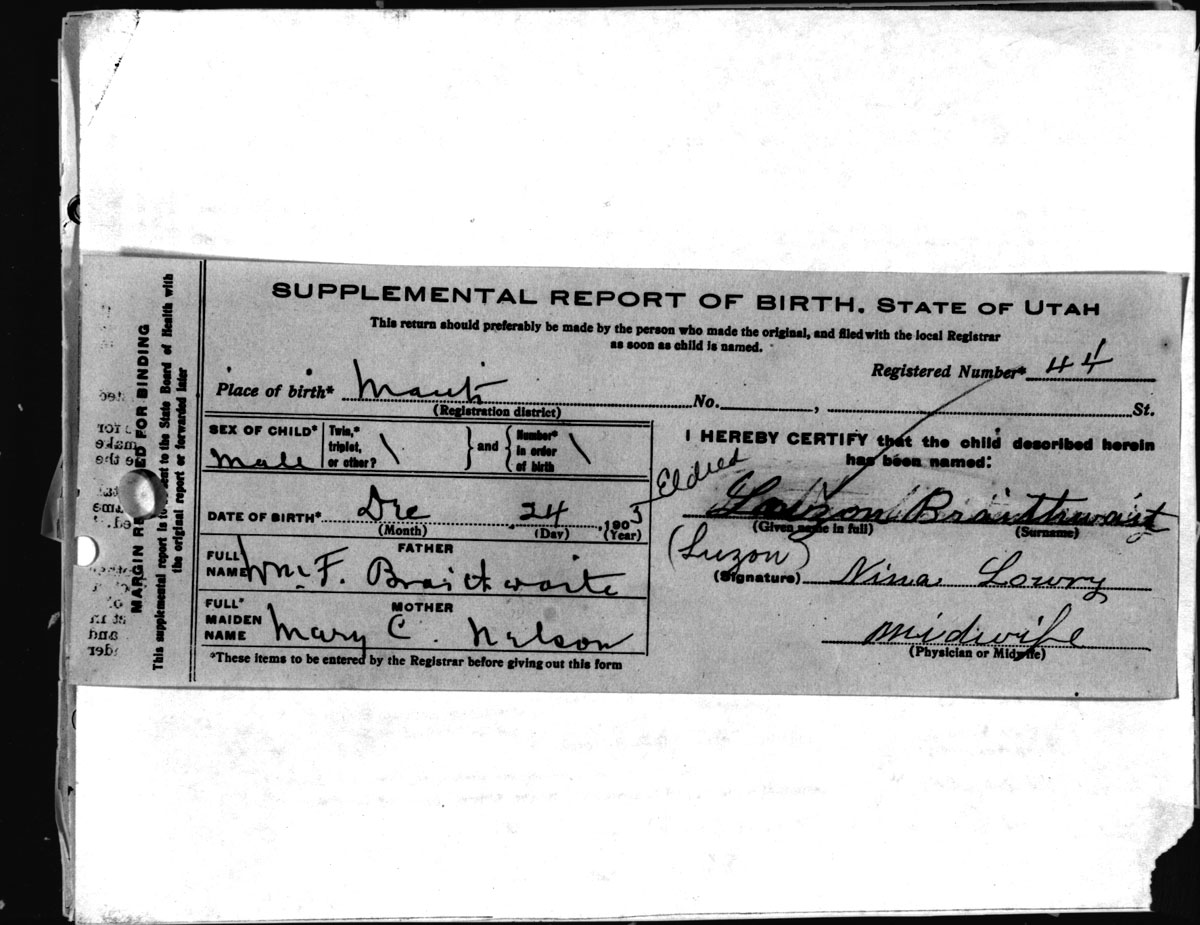 SUPPLEMENTAL REPORT OF BIRTH. STATE OF UTAH
This return should preferably be made by the person who made the original, and filed with the local Registrar
as soon as child is named.
Registered Number* 44
Place of birth* Manti No. , St.
(Registration district)
SEX OF CHILD* Male Twin,* triplet, or other? \ } and { Number* in order of birth \
I HEREBY CERTIFY that the child described herein
has been named:
Eldred
Luzon Braithwaist
(Given name in full) (Surname)
(Luzon)
DATE OF BIRTH* Dec 24, 1903
(Month) (Day) (Year)
FATHER
FULL NAME Wm. F. Braithwaite
(Signature) Nina Lowry
MOTHER
FULL* MAIDEN NAME Mary C. Nelson
Midwife
(Physician or Midwife)
*These items to be entered by the Registrar before giving out this form
MARGIN RE ED FOR BINDING
This supplemental report is to ent to the State Board of Health with
the original report or forwarded later